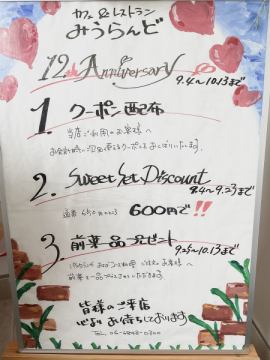 カフェ&レストラン
みうらんど
12th Anniversary
9.4〜10.13まで
1. クーポン配布
当店ご利用のお客様へ
お会計時に
使えるクーポンを お配りいたします。
2. Sweet Set Discount
9.4〜9.23まで
通常 650円のところ 600円で!!
3. 前菜一品プレゼント
9.25〜10.13まで
ご注文のお客様へ
前菜を一品プレゼントさせていただきます。
皆様のご来店
心よりお待ちしております